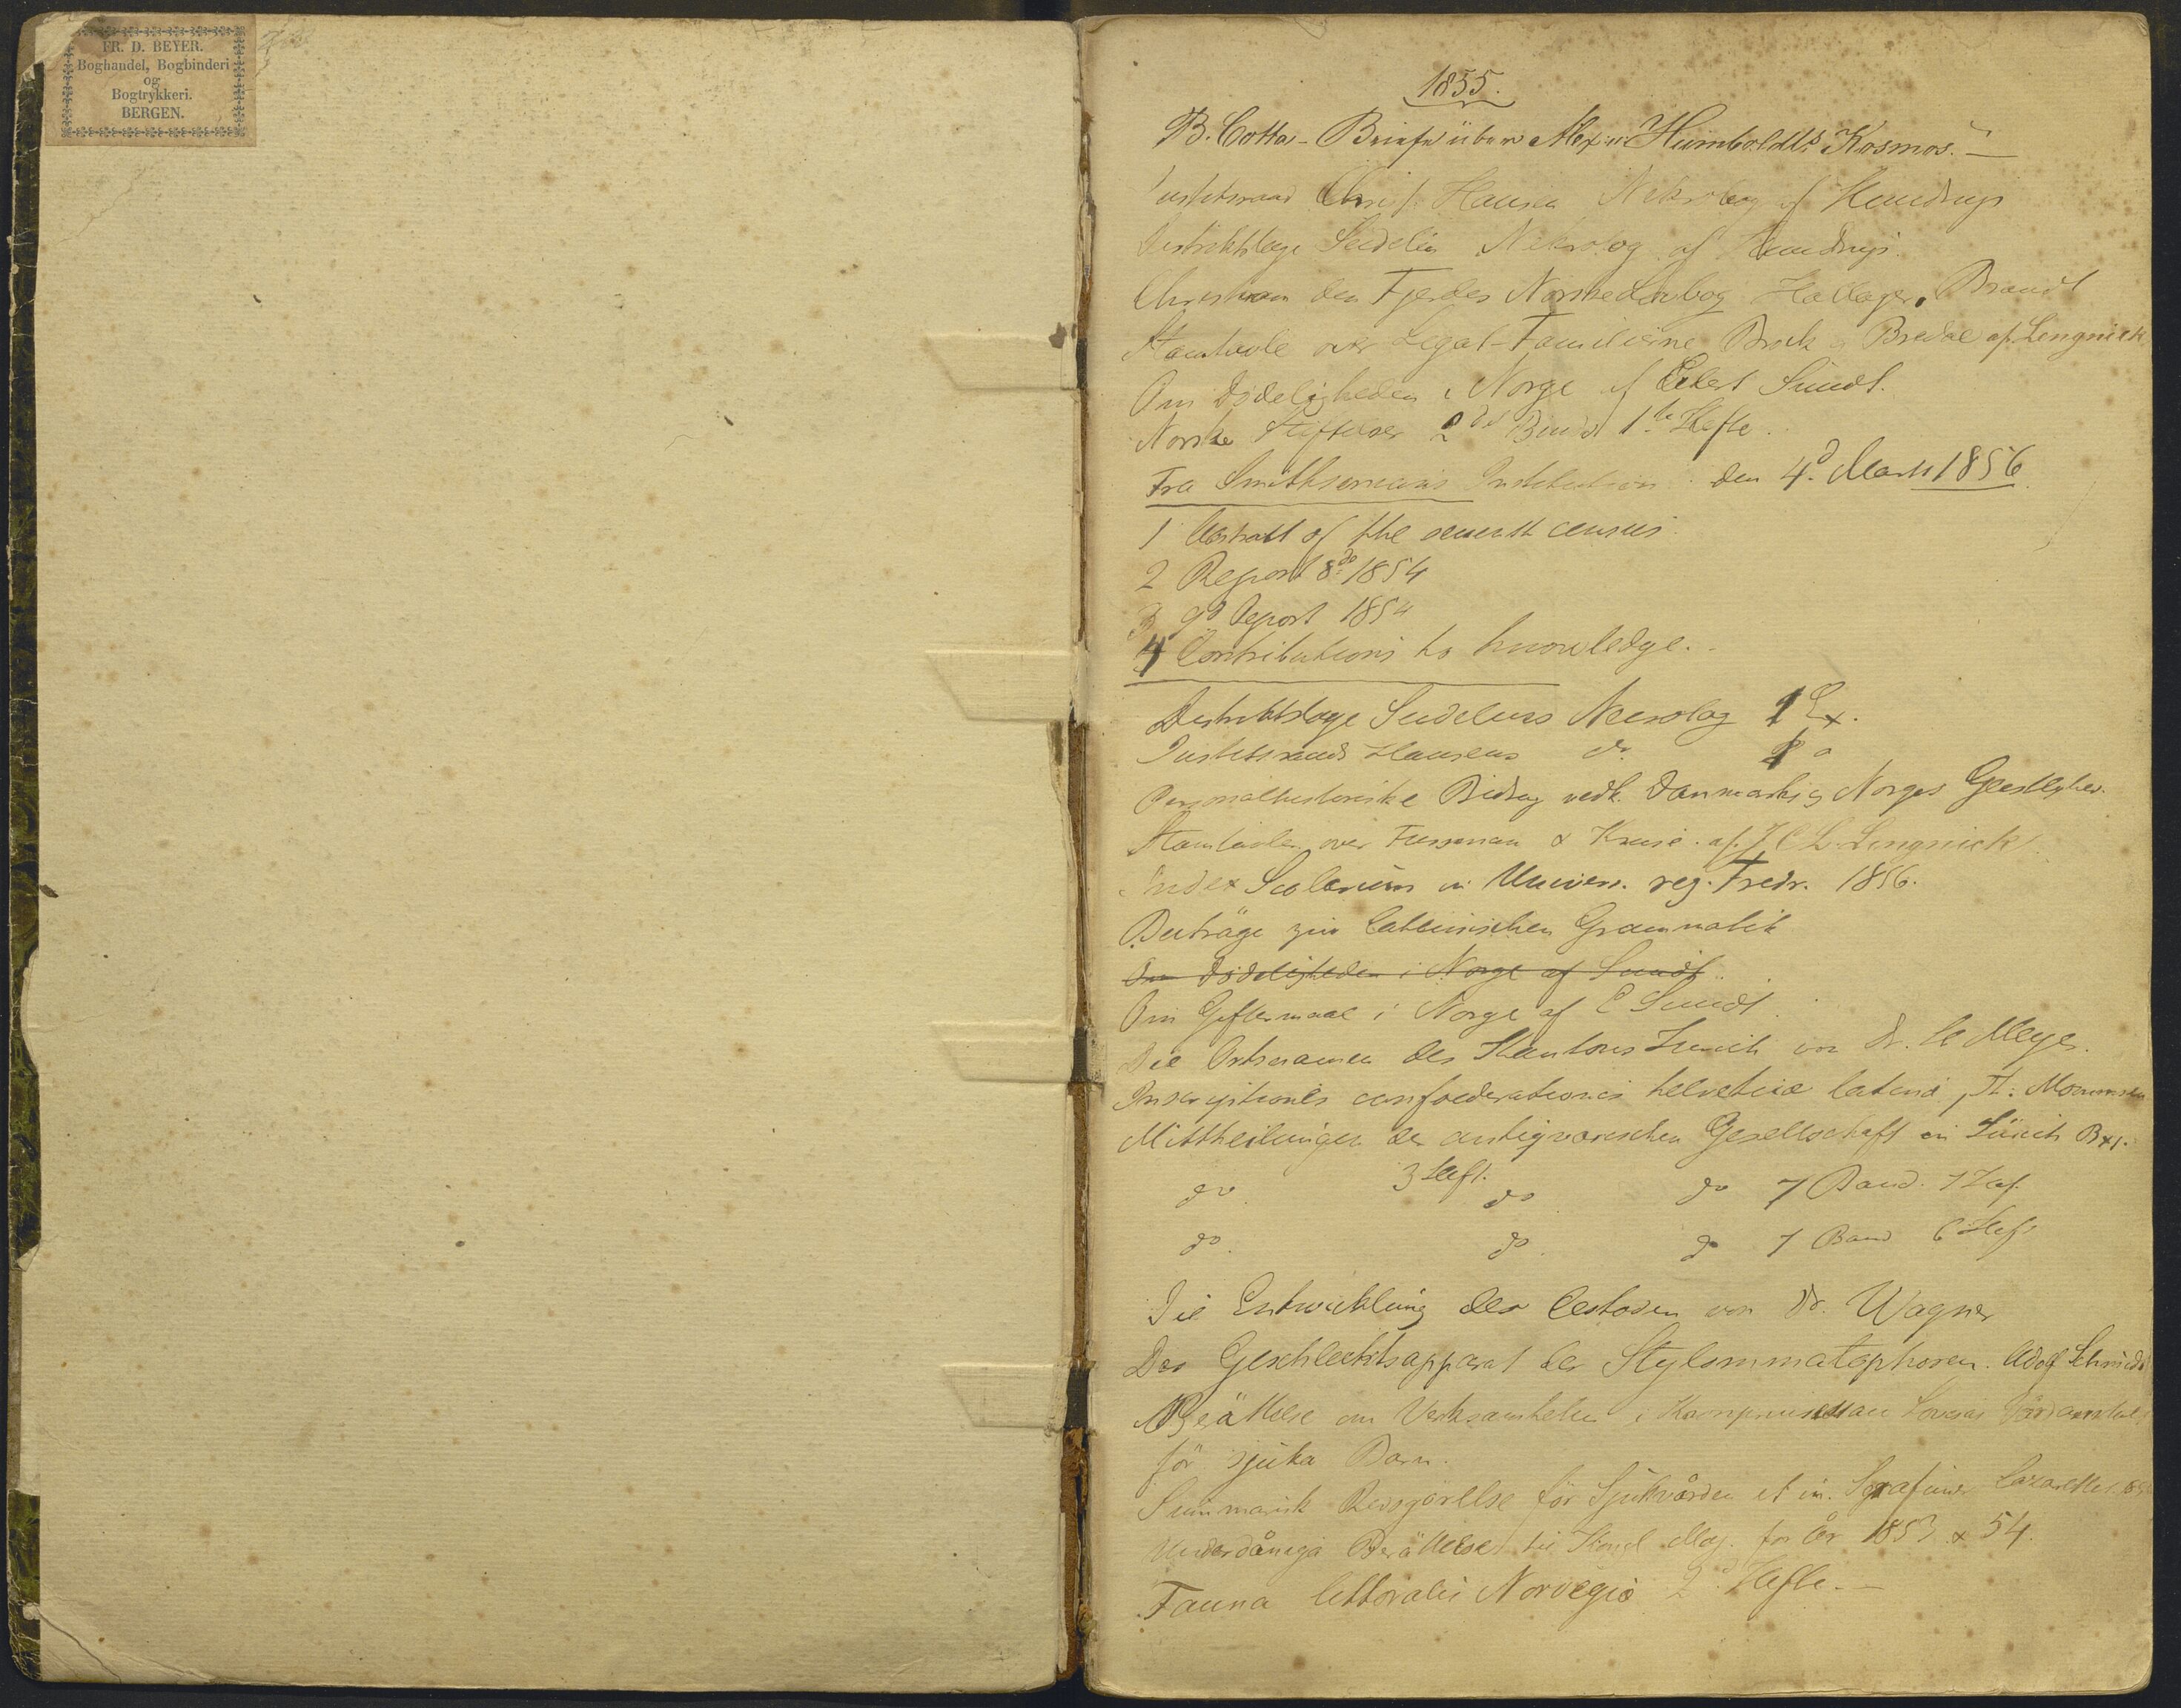 FR. D. BEYER.
Boghandel, Bogbinderi
og
Bogtrykkeri.
BERGEN.
1855.
B. Cotta - Briefe über Alex. v. Humboldts Kosmos. —
Justitsraad Christ. Hansen Nekrolog af Heudrup
Distriktslæge Seidelin Nekrolog af Heudrup.
Christian den Fjerdes Norske Lovbog Hallager, Brandt
Stamtavle over Legat-Familierne Brock & Bredal af Lengnick
Om Dödeligheden i Norge af Eilert Sundt.
Norske Stiftelser 2det Binds 1ste Hefte.
Fra Smithsonians Institution den 4d. Marts 1856.
1 Abstract of the seventh census.
2 Report 8do 1854
3 9d Report 1854
4 Contributions to knowledge.
Distriktslæge Seidelins Necrolog 1 Ex.
Justitsraads Hansens do. 1 o
Personalhistoriske Bidrag vedk. Danmarks og Norges Geistlighed.
Stamtavle over Fursman & Kruse. af J C L. Lengnick
Index Scolarum in Univers. reg. Fredr. 1856.
Beiträge zur lateinischen Grammatik
Om Dödeligheden i Norge af Sundt.
Om Giftermaal i Norge af E Sundt.
Die Ortsnamen des Kantons Zürich von Dr. H Meyer.
Inscriptiones confoederationis helveticæ latinæ, Th: Mommsen
Mittheilungen der antiqvarischen Gesellschaft in Zürich B XI.
3 Heft.
do. do do 7 Band. 7 Hef.
do. do. do 7 Band 6 Hef
Die Entwicklung der Cestoden von Dr. Wagner
Der Geschlechtsapparat der Stylommatophoren. Adolf Schmidt
Berättelse om Verksamheten i Lovisas Vårdanstalt
för sjuka Barn.
Summarisk Redogörelse för Sjukvården et in. Serafimer Lazarettet
Underdåniga Berättelse til Kongl Maj. for År 1853 & 54.
Fauna littoralis Norvegiæ 2d Hefte. —